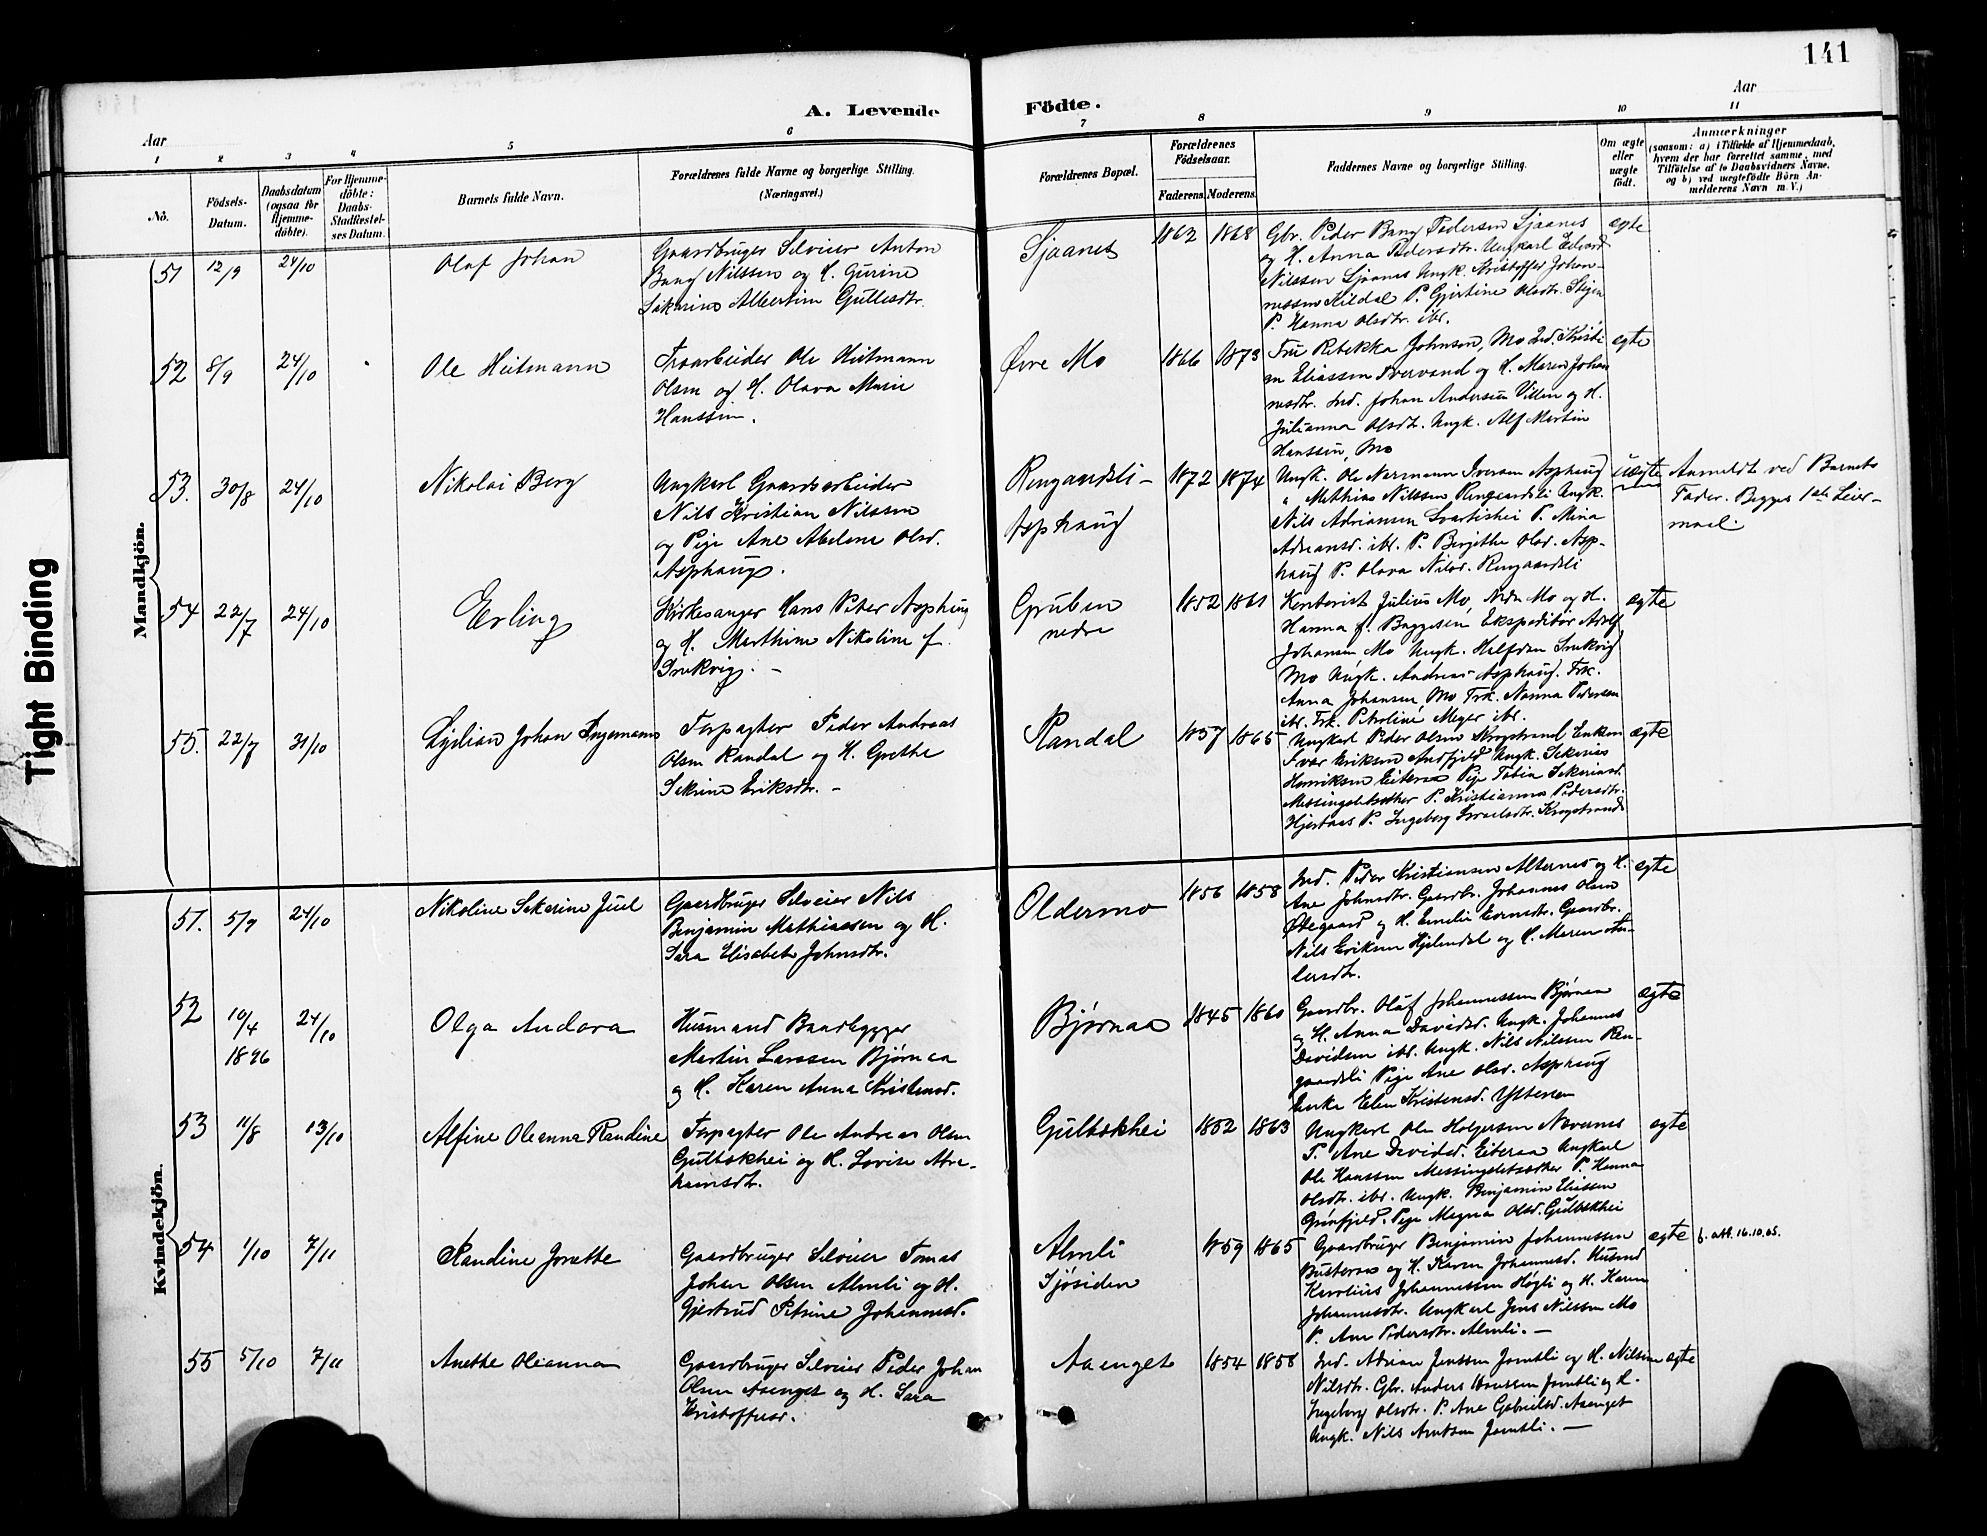 141
A. Levende Födte.
Aar
Aar
1 2 3 4 5 6 7 8 9 10 11
No.
Födsels-Datum.
Daabsdatum (ogsaa for Hjemme-döbte).
For Hjemme-döbte: Daabs-Stadfæstelses Datum.
Barnets fulde Navn.
Forældrenes fulde Navne og borgerlige Stilling.
(Næringsvei.)
Forældrenes Bopæl.
Forældrenes Födselsaar.
Faderens. Moderens.
Faddernes Navne og borgerlige Stilling.
Om ægte eller uægte födt.
Anmærkninger
(saasom: a) i Tilfælde af Hjemmedaab, hvem der har forrettet samme, med Tilföielse af to Daabsvidners Navne, og b) ved uægtefödte Börn Anmelderens Navn m. V.)
Tight Binding
Mandkjön.
51 12/9 24/10 Olaf Johan
Gaardbruger Selveier Anton
Bang Nilssen og H. Gurine
Sakarina Albertine Gullesdtr.
Sjaanes 1862 1868
Gbr. Peder Bang Pedersen Sjaanes
og H. Anna Pedersdtr. Ungkarl Edvard
Nilssen Sjaanes Ungk. Kristoffer Johan-
nessen Kildal P. Gjertine Olsdtr. Stijen
P. Hanna Olsdtr. ibr.
ægte
52 8/9 24/10 Ole Heitmann
Træarbeider Ole Heitmann
Olsen og H. Olava Marie
Hanssen.
Øvre Mo 1866 1873
Fru Rebekka Johnsen, Mo Ind. Kristi
an Eliassen Tvervand og H. Maren Johan
nesdtr. Ind. Johan Andersen Villen og H.
Julianna Olsdtr. Ungk. Alf Martin
Hanssen, Mo
ægte
53. 30/8 24/10 Nikolai Berg
Ungkarl Gaardsarbeider
Nils Kristian Nilssen
og Pige Ane Abelone Olsd.
Asphaug.
Rengaardsli-
Asphaug
1872 1874
Ungk. Ole Normann Iversen Asphaug
" Mathias Nilssen Rengaardsli Ungk.
Nils Adriansen Svartishei P. Mina
Adriansd. ibr. P. Bergithe Olsd. Asp-
haug P. Olava Nilsd. Rengaardsli
uægte
Anmeldt ved Barnets
Fader. Begges 1ste Leier-
maal.
54 22/7 24/10 Erling
Kirkesanger Hans Peter Asphaug
og H. Marthine Nikoline f.
Grukvig. -
Gruben
nedre
1852 1861
Kontorist Julius Mo, Nedre Mo og H.
Hanna f. Baggesen Ekspeditør Adolf
Johansen Mo Ungk. Halfdan
Mo Ungk. Andreas Asphaug. Frk.
Anna Johansen, Mo Frk. Nanna Pedersen
ibr. Frk. Petroline Meyer ibr.
ægte
55. 22/7 31/10 Lydian Johan Ingemann
Forpagter Peder Andreas
Olsen Randal og H. Grethe
Sekrine Eriksdtr. -
Randal 1857 1865
Ungkarl Peder Olsen Krogstrand Enkem
Ivar Eriksen Andfjeld Ungk. Sekarias
Henriksen Eiteraa Pige Tobia Sekariasd.
Messingsletsæther P. Kristianna Pedersdtr.
Hjertaas P. Ingeborg Israelsdtr. Krogstrand
ægte
Kvindekjön.
51. 5/9 24/10 Nikoline Sekarine Juel
Gaardbruger Selveier Nils
Benjamin Mathiassen og H.
Sara Elisabet Johnsdtr.
Oldermo 1856 1858
Ind. Peder Kristiansen Alternes og H.
Ane Johnsdtr. Gaardbr. Johannes Olsen
Østegaard og H. Emelie Tornsdtr. Gaardbr.
Nils Eriksen Hjelendal og H. Maren An-
dersdtr.
ægte
52 10/4 1896 24/10 Olga Andora
Husmand Baadbygger
Martin Larssen Bjørnaa
og H. Karen Anna Kristensd.
Bjørnaa 1845 1860
Gaardbr. Oluf Johannessen Bjørnaa
og H. Anna Davidsd. Ungk. Johannes
Davidsen ibr. Ungk. Nils Nilssen Ren-
gaardsli Pige Ane Olsd. Asphaug
Enke Elen Kristensd. Ytteren
ægte
53 11/8 13/10 Alfine Oleanna Randine
Forpagter Ole Andreas Olsen
Gulbakhei og H. Lovise Abra-
hamsdtr.
Gulbakhei 1852 1863
Ungkarl Ole Holgersen Nævernes
P. Ane Davidsd. Eiteraa Ungkarl
Ole Hanssen Messingsletsæther P. Hanna
Olsdtr. ibr. Ungk. Benjamin Eliassen
Grønfjeld. Pige Magna Olsd. Gulbakhei
ægte
54 1/10 7/11 Randine Jonette
Gaardbruger Selveier Tomas
Johan Olsen Almli og H.
Gjertrud Petrine Johannesd.
Almli
Sjøsiden
1859 1865
Gaardbruger Benjamin Johannessen
Busteraa og H. Karen Johannesd. Husmd
Karolius Johannessen Høgli og H. Karen
Johannesdtr. Ungkarl Jens Nilssen Mo
P. Ane Pedersdtr. Almli. -
ægte
f. att. 16.10.65.
55 5/10 7/11 Anethe Oleanna
Gaardbruger Selveier Peder Johan
Olsen Aaenget og H. Sara
Kristoffersd.
Aaenget 1854 1858
Ind. Adrian Jenssen Jamtli og H. Nilsine
Nilsdtr. Gbr. Anders Hanssen Jamtli og H.
Ingeborg Olsdtr. P. Ane Gabrielsd. Aaenget
Ungk. Nils Arntsen Jamtli. -
ægte